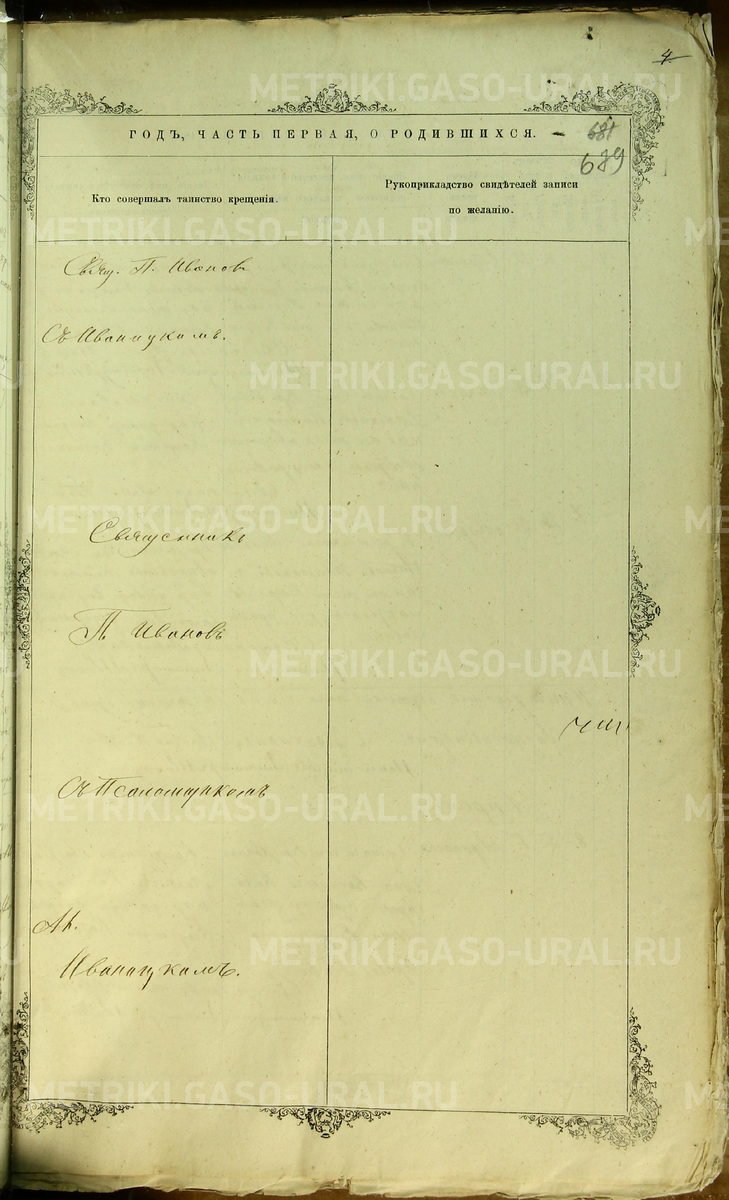 4
ГОДЪ, ЧАСТЬ ПЕРВАЯ, О РОДИВШИХСЯ.
681
689
Кто совершалъ таинство крещенія.
Рукоприкладство свидѣтелей записи
по желанію.
Свящ. П. Иванов
Съ Иваницкимъ.
Священникъ
П. Ивановъ
Съ Псаломщикомъ
Ал.
Иваницкимъ.
METRIKI.GASO-URAL.RU